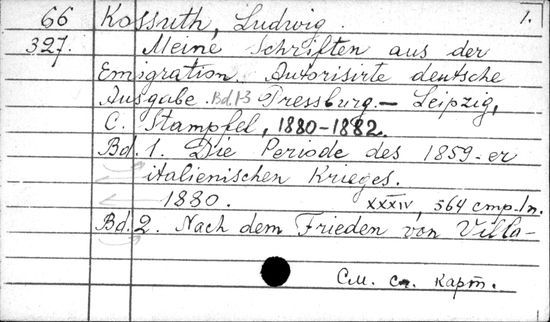 66 Kossuth, Ludwig. 1.
327. Meine Schriften aus der
Emigration. Autorisirte deutsche
Ausgabe. Bd.1-3 Pressburg. — Leipzig,
C. Stampfel, 1880-1882.
Bd. 1. Die Periode des 1859-er
italienischen Krieges.
1880. XXXIV, 564 стр. /n.
Bd. 2. Nach dem Frieden von Villa-
См. сл. карт.